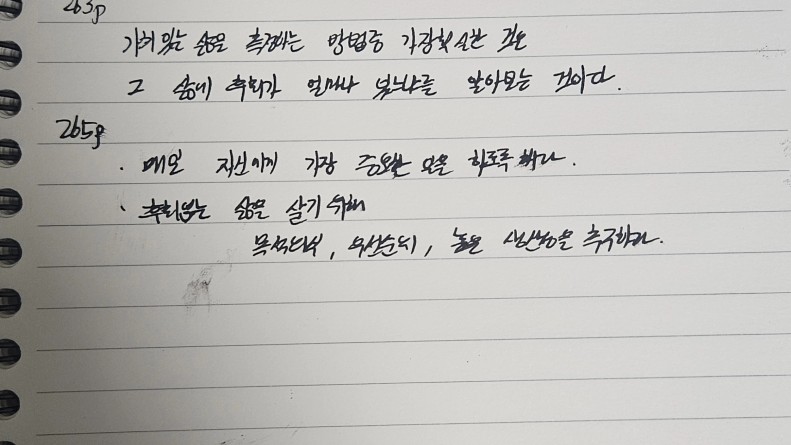 263p
가치 있는 삶을 측정하는 방법중 가장 확실한 것은
그 삶에 후회가 얼마나 있느냐를 알아보는 것이다.
265p
· 매일 자신에게 가장 중요한 일을 하도록 하라.
· 후회없는 삶을 살기 위해
목적의식, 우선순위, 높은 생산성을 추구하라.